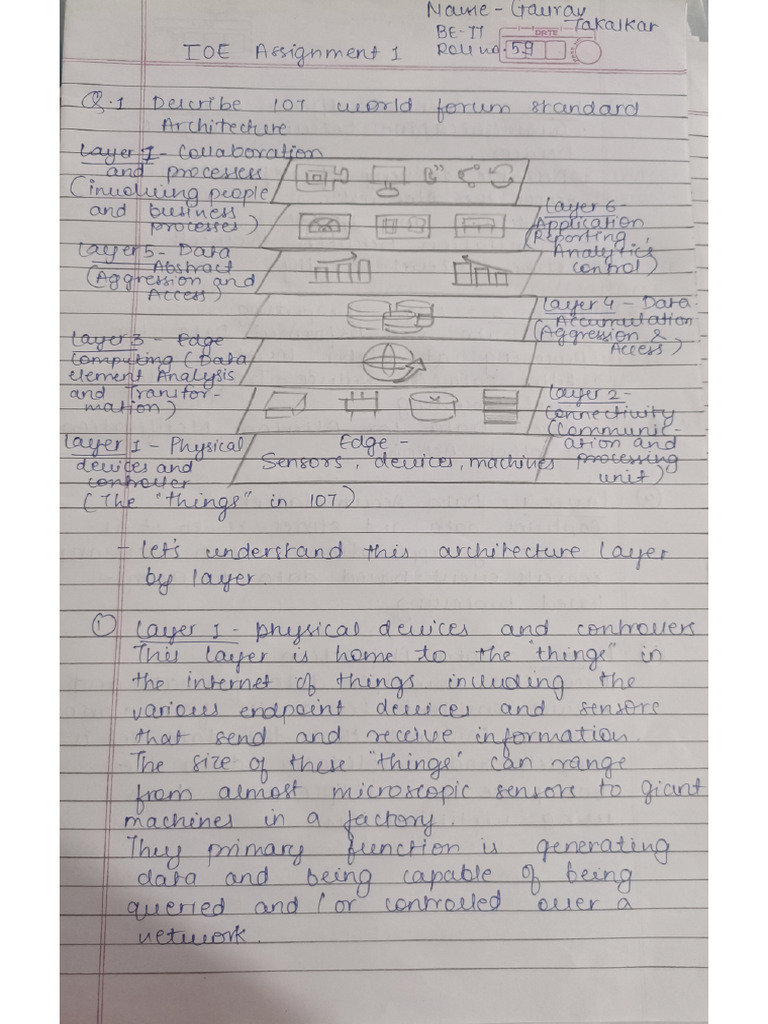 Name - Gaurav Takalkar
BE-IT
Roll no. DATE 59
IOE Assignment 1
Q.1 Describe IOT world forum standard
Architecture
Layer 7 - Collaboration
and processess
(involving people
and business
processes)
Layer 6 -
Application
(Reporting,
Analytics
control)
Layer 5 - Data
Abstract
(Aggression and
Access)
Layer 4 - Data
Accumulation
(Aggression &
Access)
Layer 3 - Edge
Computing (Data
element Analysis
and Transfor-
mation)
Layer 2 -
Connectivity
(Communic-
ation and
processing
unit)
Layer 1 - Physical
devices and
controller
(The "things" in IOT)
Edge -
Sensors, devices, machines
- Let's understand this architecture layer
by layer
① Layer 1 - physical devices and controllers
This layer is home to the "things" in
the internet of things including the
various endpoint devices and sensors
that send and receive information.
The size of these "things" can range
from almost microscopic sensors to giant
machines in a factory.
They primary function is generating
data and being capable of being
queried and / or controlled over a
network.